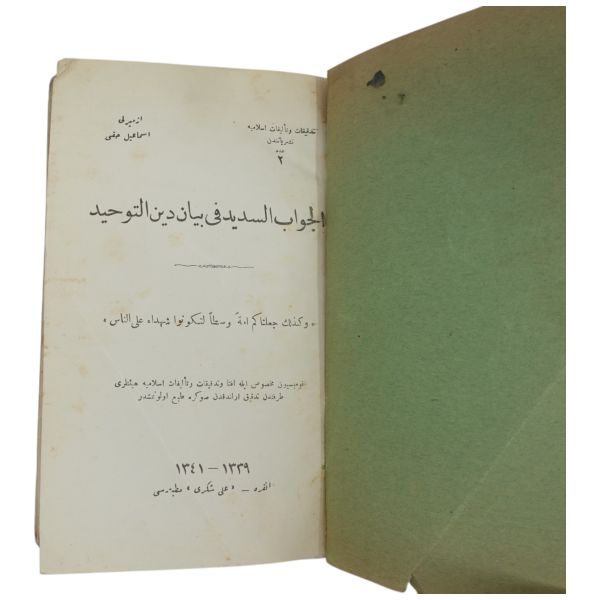 تدقیقات وتألیفات اسلامیه
نشریاتندن
عدد
۲
ازمیرلی
اسماعیل حقی
الجواب السدید فی بیان دین التوحید
« وکذلك جعلناکم امة وسطاً لتکونوا شهداء علی الناس »
قومیسیون مخصوص ایله افتا وتدقیقات وتألیفات اسلامیه هیئتلری
طرفندن تدقیق اولندقدن صوکره طبع اولونمشدر
۱۳۳۹ – ۱۳٤۱
آنقره – « علی شکری » مطبعه‌سی